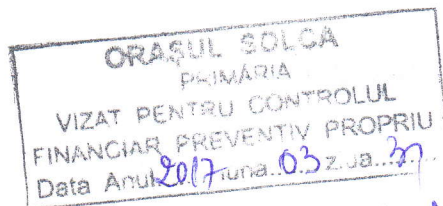 ORAȘUL SOLCA
PRIMĂRIA
VIZAT PENTRU CONTROLUL
FINANCIAR PREVENTIV PROPRIU
Data Anul 2017 luna..03 ziua..31